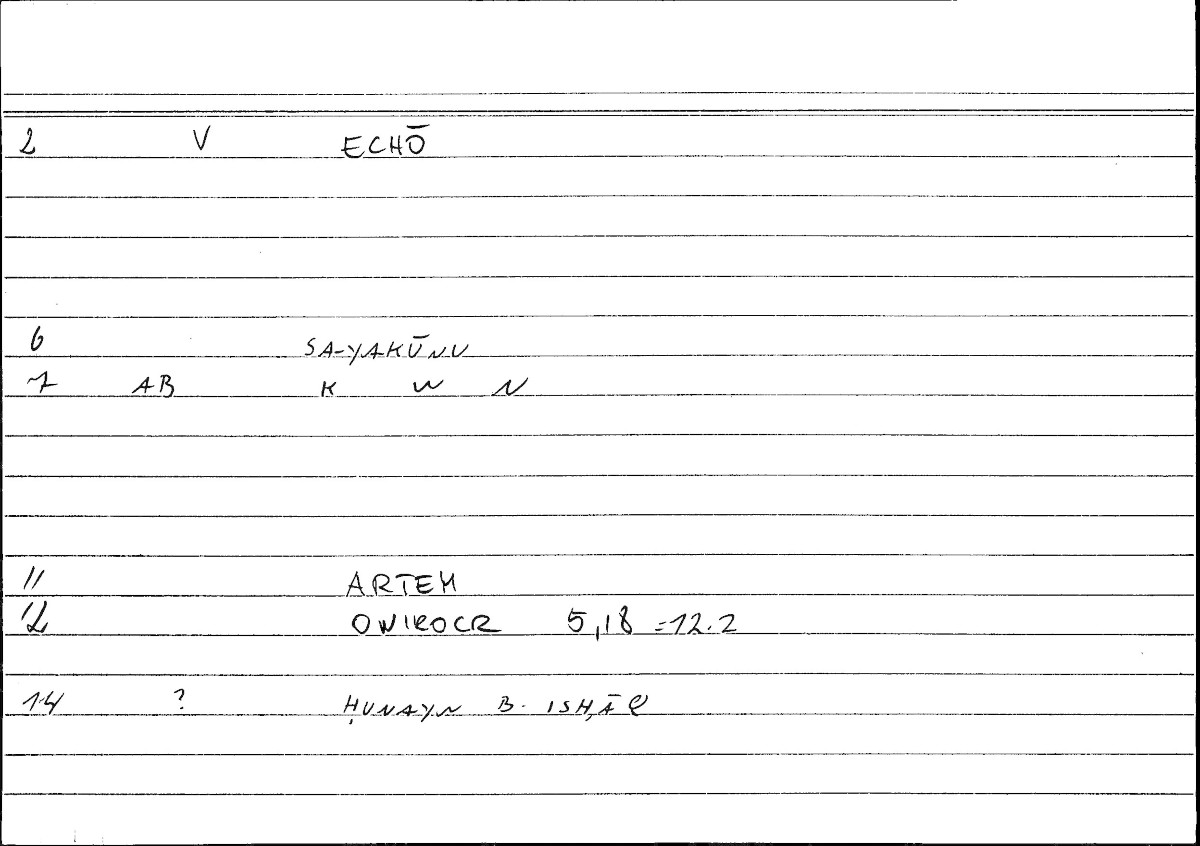 2 V ECHŌ
6 SA-YAKŪNU
7 AB K W N
11 ARTEM
12 ONIROCR 5,18 =12.2
14 ? ḤUNAYN B. ISḤĀQ